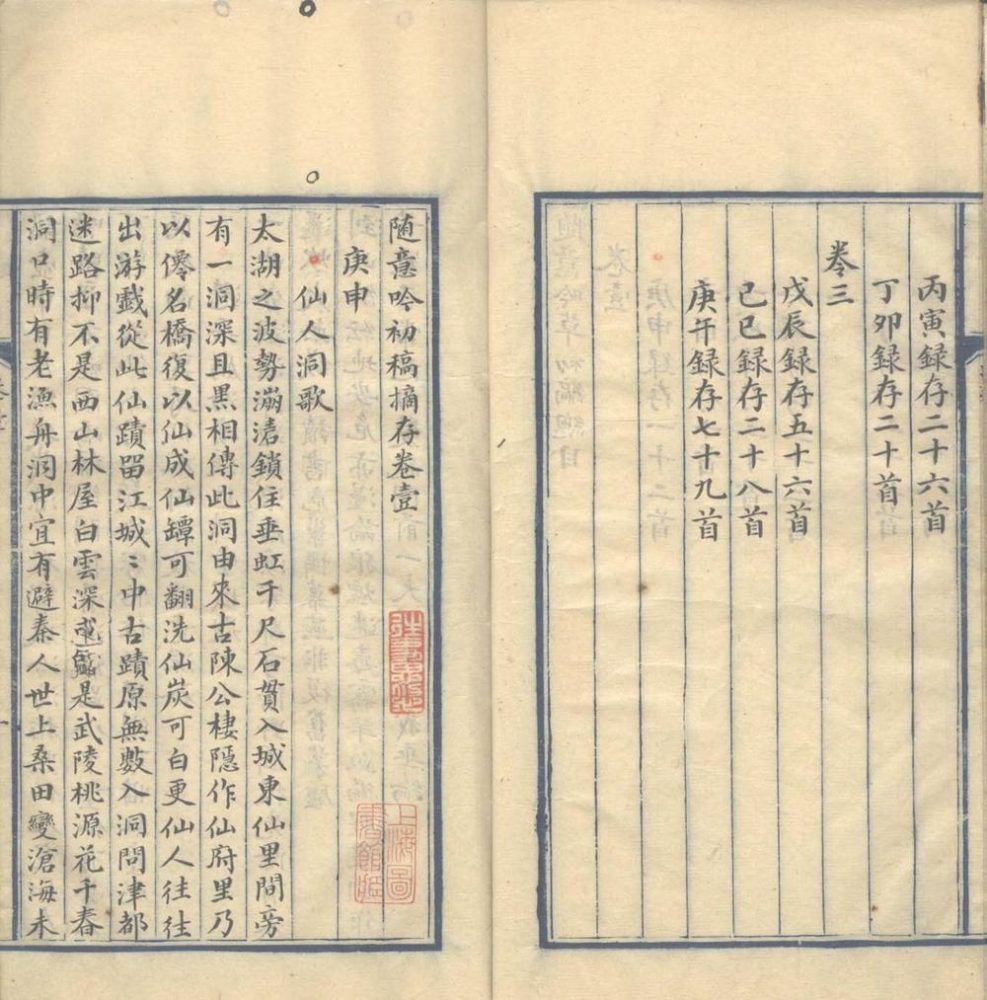 丙寅録存二十六首
丁卯録存二十首
卷三
戊辰録存五十六首
己巳録存二十八首
庚午録存七十九首
随意吟初稿摘存卷壹
庚申
仙人洞歌
太湖之波勢漰滄鎖住垂虹千尺石貫入城東仙里間旁
有一洞深且黑相傳此洞由來古陳公棲隱作仙府里乃
以僊名橋復以仙成仙罈可翻洗仙炭可白更仙人往往
出游戲從此仙蹟留江城〻中古蹟原無數入洞問津都
迷路抑不是西山林屋白雲深是武陵桃源花千春
洞口時有老漁舟洞中宜有避秦人世上桑田變滄海未
上海圖書館藏